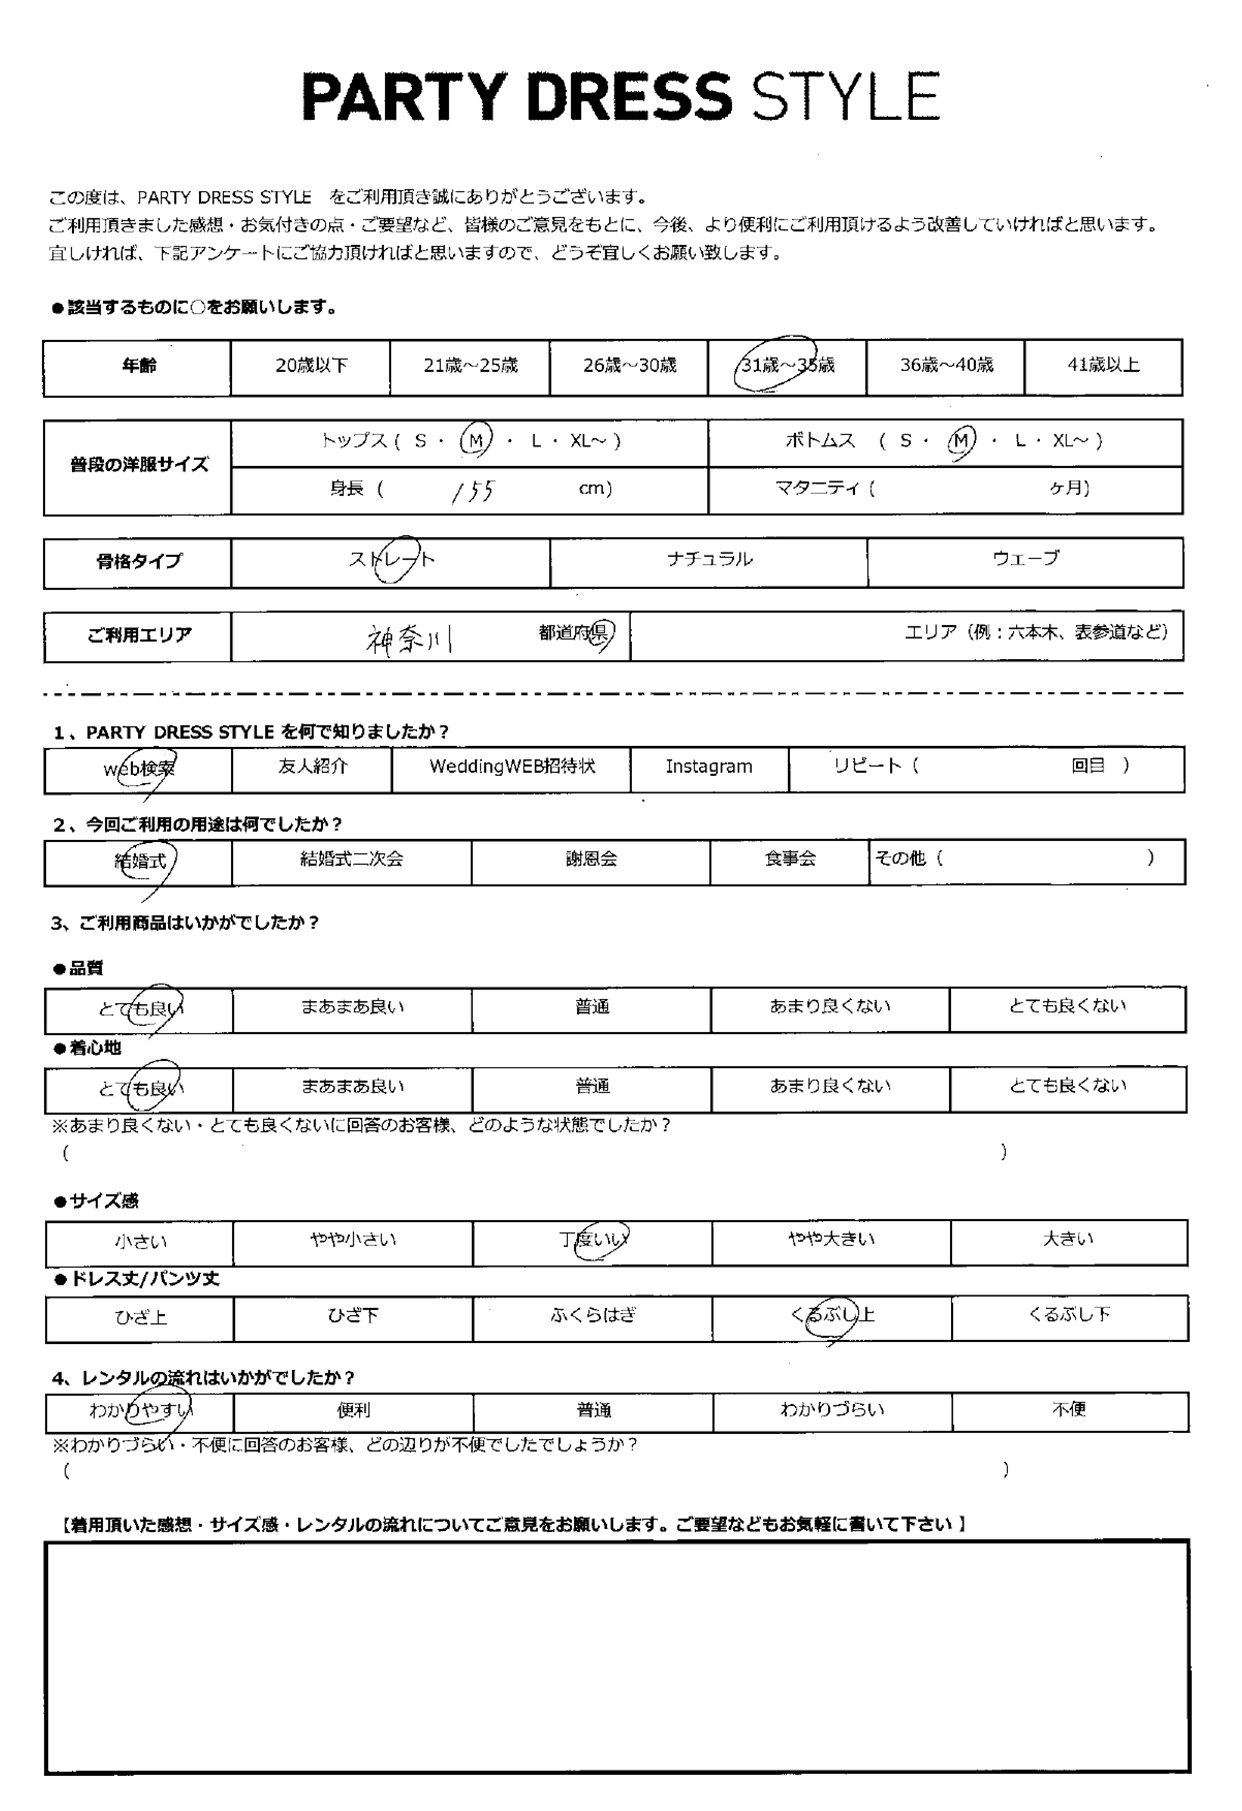 PARTY DRESS STYLE
この度は、PARTY DRESS STYLE をご利用頂き誠にありがとうございます。
ご利用頂きました感想・お気付きの点・ご要望など、皆様のご意見をもとに、今後、より便利にご利用頂けるよう改善していければと思います。
宜しければ、下記アンケートにご協力頂ければと思いますので、どうぞ宜しくお願い致します。
●該当するものに○をお願いします。
年齢 20歳以下 21歳～25歳 26歳～30歳 31歳～35歳 36歳～40歳 41歳以上
普段の洋服サイズ トップス ( S ・ M ・ L ・ XL～ ) ボトムス ( S ・ M ・ L ・ XL～ )
身長 ( 155 cm) マタニティ ( ヶ月)
骨格タイプ ストレート ナチュラル ウェーブ
ご利用エリア 神奈川 都道府県 エリア（例：六本木、表参道など）
1、PARTY DRESS STYLE を何で知りましたか？
web検索 友人紹介 WeddingWEB招待状 Instagram リピート ( 回目 )
2、今回ご利用の用途は何でしたか？
結婚式 結婚式二次会 謝恩会 食事会 その他 ( )
3、ご利用商品はいかがでしたか？
●品質
とても良い まあまあ良い 普通 あまり良くない とても良くない
●着心地
とても良い まあまあ良い 普通 あまり良くない とても良くない
※あまり良くない・とても良くないに回答のお客様、どのような状態でしたか？
( )
●サイズ感
小さい やや小さい 丁度いい やや大きい 大きい
●ドレス丈/パンツ丈
ひざ上 ひざ下 ふくらはぎ くるぶし上 くるぶし下
4、レンタルの流れはいかがでしたか？
わかりやすい 便利 普通 わかりづらい 不便
※わかりづらい・不便に回答のお客様、どの辺りが不便でしたでしょうか？
( )
【着用頂いた感想・サイズ感・レンタルの流れについてご意見をお願いします。ご要望などもお気軽に書いて下さい 】